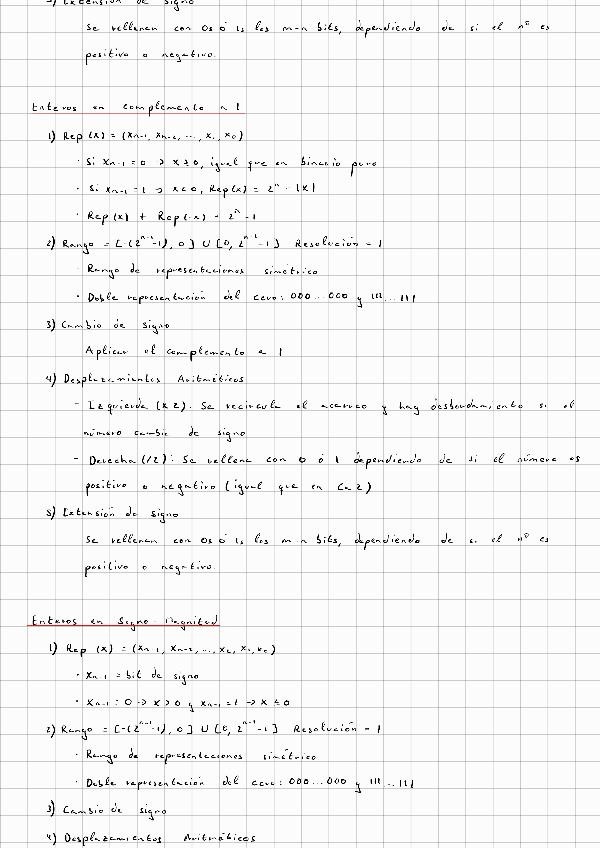 5) Extensión de signo
Se rellenan con 0s ó 1s los m-n bits, dependiendo de si el nº es
positivo o negativo.
Enteros en complemento a 1
1) Rep (x) = (xn-1, xn-2, ..., x1, x0)
· Si xn-1 = 0 → x ≥ 0, igual que en binario puro
· Si xn-1 = 1 → x < 0, Rep(x) = 2^n - |x|
· Rep(x) + Rep(-x) = 2^n - 1
2) Rango = [-(2^n-1 -1), 0] U [0, 2^n-1 -1] Resolución = 1
· Rango de representaciones simétrico
· Doble representación del cero: 000...000 y 111...111
3) Cambio de signo
Aplicar el complemento a 1
4) Desplazamientos Aritméticos
- Izquierda (x2). Se recircula el acarreo y hay desbordamiento si el
número cambia de signo
- Derecha (/2): Se rellena con 0 ó 1 dependiendo de si el número es
positivo o negativo (igual que en Ca2)
5) Extensión de signo
Se rellenan con 0s ó 1s los m-n bits, dependiendo de si el nº es
positivo o negativo.
Enteros en Signo-Magnitud
1) Rep (x) = (xn-1, xn-2, ..., x2, x1, x0)
· xn-1 = bit de signo
· xn-1 : 0 → x > 0 y xn-1 = 1 → x ≤ 0
2) Rango = [-(2^n-1 -1), 0] U [0, 2^n-1 -1] Resolución = 1
· Rango de representaciones simétrico
· Doble representación del cero: 000...000 y 111...111
3) Cambio de signo
4) Desplazamientos Aritméticos